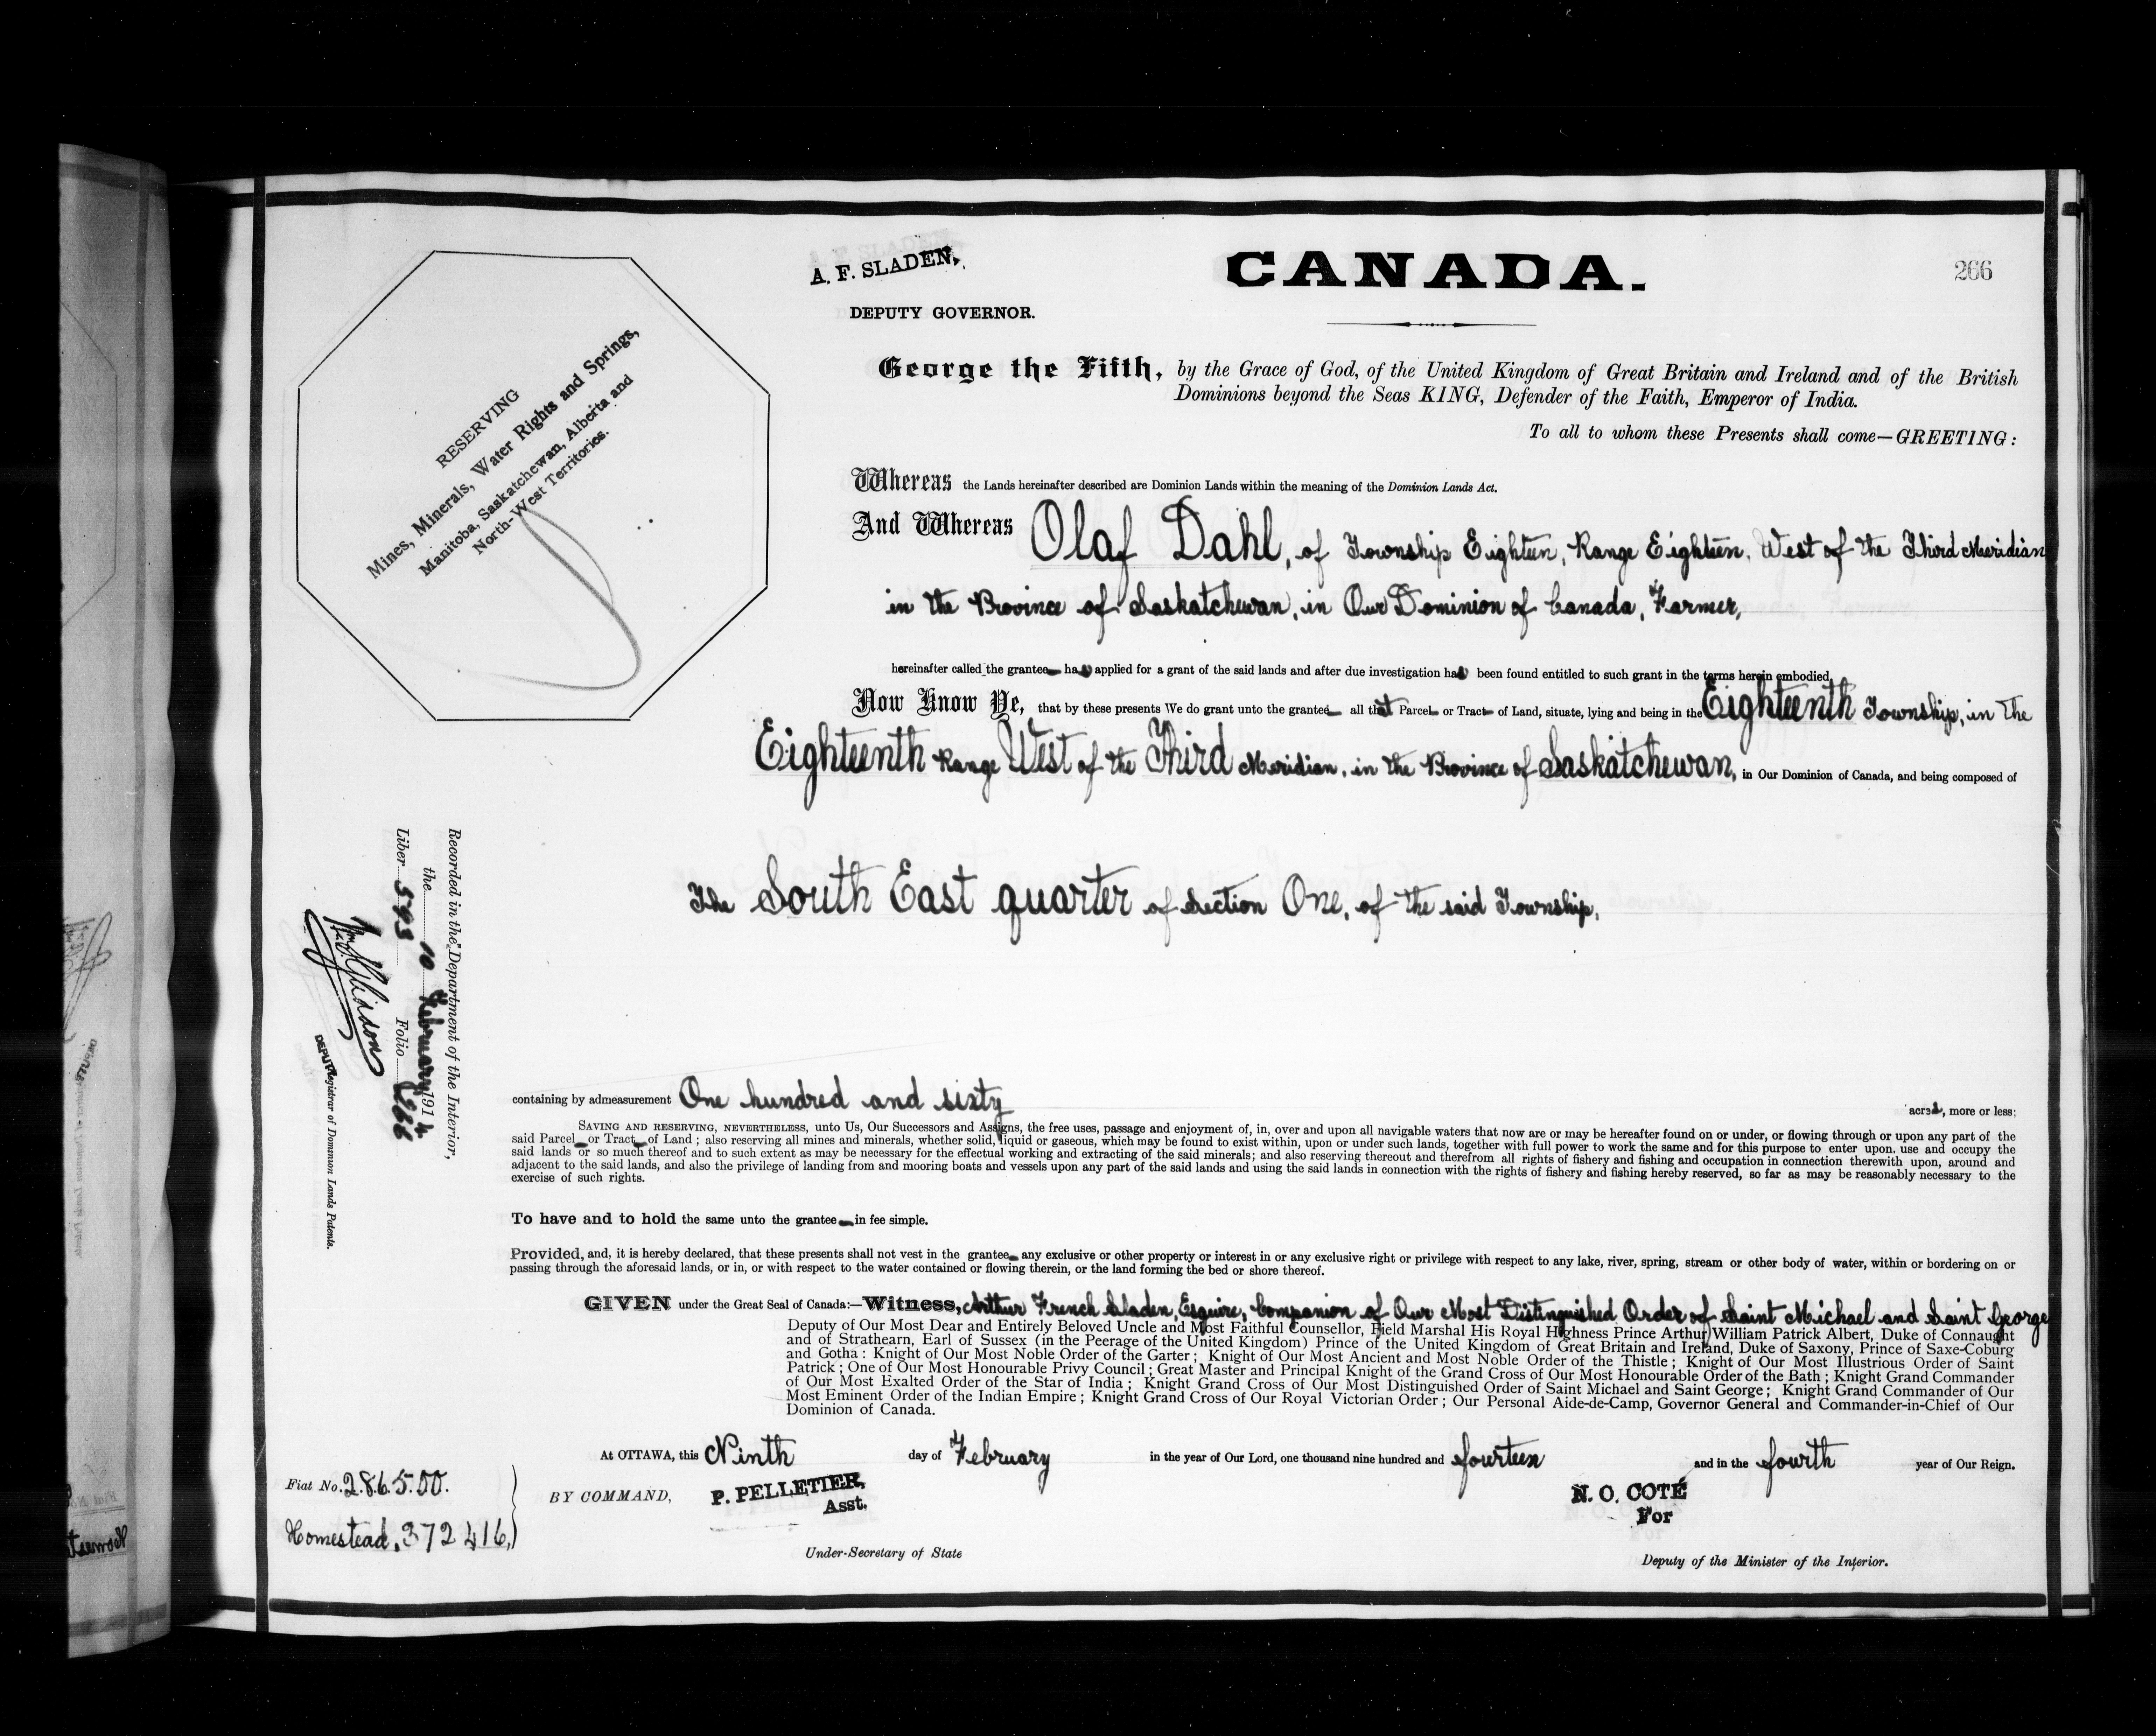 A. F. SLADEN,
DEPUTY GOVERNOR.
CANADA.
266
RESERVING
Mines, Minerals, Water Rights and Springs,
Manitoba, Saskatchewan, Alberta and
North-West Territories.
George the Fifth, by the Grace of God, of the United Kingdom of Great Britain and Ireland and of the British
Dominions beyond the Seas KING, Defender of the Faith, Emperor of India.
To all to whom these Presents shall come—GREETING:
Whereas the Lands hereinafter described are Dominion Lands within the meaning of the Dominion Lands Act.
And Whereas Olaf Dahl, of Township Eighteen, Range Eighteen, West of the Third Meridian
in the Province of Saskatchewan, in Our Dominion of Canada, Farmer,
hereinafter called the grantee has applied for a grant of the said lands and after due investigation has been found entitled to such grant in the terms herein embodied.
Now Know Ye, that by these presents We do grant unto the grantee all that Parcel or Tract of Land, situate, lying and being in the Eighteenth Township, in the
Eighteenth Range West of the Third Meridian, in the Province of Saskatchewan, in Our Dominion of Canada, and being composed of
The South East quarter of Section One, of the said Township,
containing by admeasurement One hundred and sixty acres, more or less;
SAVING AND RESERVING, NEVERTHELESS, unto Us, Our Successors and Assigns, the free uses, passage and enjoyment of, in, over and upon all navigable waters that now are or may be hereafter found on or under, or flowing through or upon any part of the
said Parcel or Tract of Land; also reserving all mines and minerals, whether solid, liquid or gaseous, which may be found to exist within, upon or under such lands, together with full power to work the same and for this purpose to enter upon, use and occupy the
said lands or so much thereof and to such extent as may be necessary for the effectual working and extracting of the said minerals; and also reserving thereout and therefrom all rights of fishery and fishing and occupation in connection therewith upon, around and
adjacent to the said lands, and also the privilege of landing from and mooring boats and vessels upon any part of the said lands and using the said lands in connection with the rights of fishery and fishing hereby reserved, so far as may be reasonably necessary to the
exercise of such rights.
To have and to hold the same unto the grantee in fee simple.
Provided, and, it is hereby declared, that these presents shall not vest in the grantee any exclusive or other property or interest in or any exclusive right or privilege with respect to any lake, river, spring, stream or other body of water, within or bordering on or
passing through the aforesaid lands, or in, or with respect to the water contained or flowing therein, or the land forming the bed or shore thereof.
GIVEN under the Great Seal of Canada:—Witness, Arthur French Sladen, Esquire, Companion of Our Most Distinguished Order of Saint Michael and Saint George
Deputy of Our Most Dear and Entirely Beloved Uncle and Most Faithful Counsellor, Field Marshal His Royal Highness Prince Arthur William Patrick Albert, Duke of Connaught
and of Strathearn, Earl of Sussex (in the Peerage of the United Kingdom) Prince of the United Kingdom of Great Britain and Ireland, Duke of Saxony, Prince of Saxe-Coburg
and Gotha: Knight of Our Most Noble Order of the Garter; Knight of Our Most Ancient and Most Noble Order of the Thistle; Knight of Our Most Illustrious Order of Saint
Patrick; One of Our Most Honourable Privy Council; Great Master and Principal Knight of the Grand Cross of Our Most Honourable Order of the Bath; Knight Grand Commander
of Our Most Exalted Order of the Star of India; Knight Grand Cross of Our Most Distinguished Order of Saint Michael and Saint George; Knight Grand Commander of Our
Most Eminent Order of the Indian Empire; Knight Grand Cross of Our Royal Victorian Order; Our Personal Aide-de-Camp, Governor General and Commander-in-Chief of Our
Dominion of Canada.
At OTTAWA, this Ninth day of February in the year of Our Lord, one thousand nine hundred and fourteen and in the fourth year of Our Reign.
BY COMMAND,
P. PELLETIER,
Asst.
Under-Secretary of State
N. O. COTÉ
For
Deputy of the Minister of the Interior.
Fiat No. 286500.
Homestead, 372416,
Recorded in the Department of the Interior,
the 10 February 1914
Liber 593 Folio 266
DEPUTY Registrar of Dominion Lands Patents.